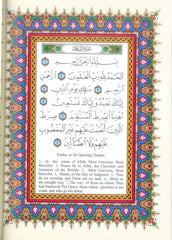 سُورَةُ الْفَاتِحَةِ
بِسْمِ اللَّهِ الرَّحْمَٰنِ الرَّحِيمِ
الْحَمْدُ لِلَّهِ رَبِّ الْعَالَمِينَ الرَّحْمَٰنِ
الرَّحِيمِ مَالِكِ يَوْمِ الدِّينِ
إِيَّاكَ نَعْبُدُ وَإِيَّاكَ نَسْتَعِينُ
اهْدِنَا الصِّرَاطَ الْمُسْتَقِيمَ صِرَاطَ
الَّذِينَ أَنْعَمْتَ عَلَيْهِمْ غَيْرِ الْمَغْضُوبِ
عَلَيْهِمْ وَلَا الضَّالِّينَ
Fatiha, or the Opening Chapter.
1. In the name of Allah, Most Gracious, Most
Merciful. 2. Praise be to Allah, the Cherisher and
Sustainer of the Worlds; 3. Most Gracious, Most
Merciful; 4. Master of the Day of Judgment. 5. Thee
do we worship, and Thine aid we seek. 6. Show us
the straight way, 7. The way of those on whom Thou
hast bestowed Thy Grace, those whose (portion) is not
wrath, and who go not astray.